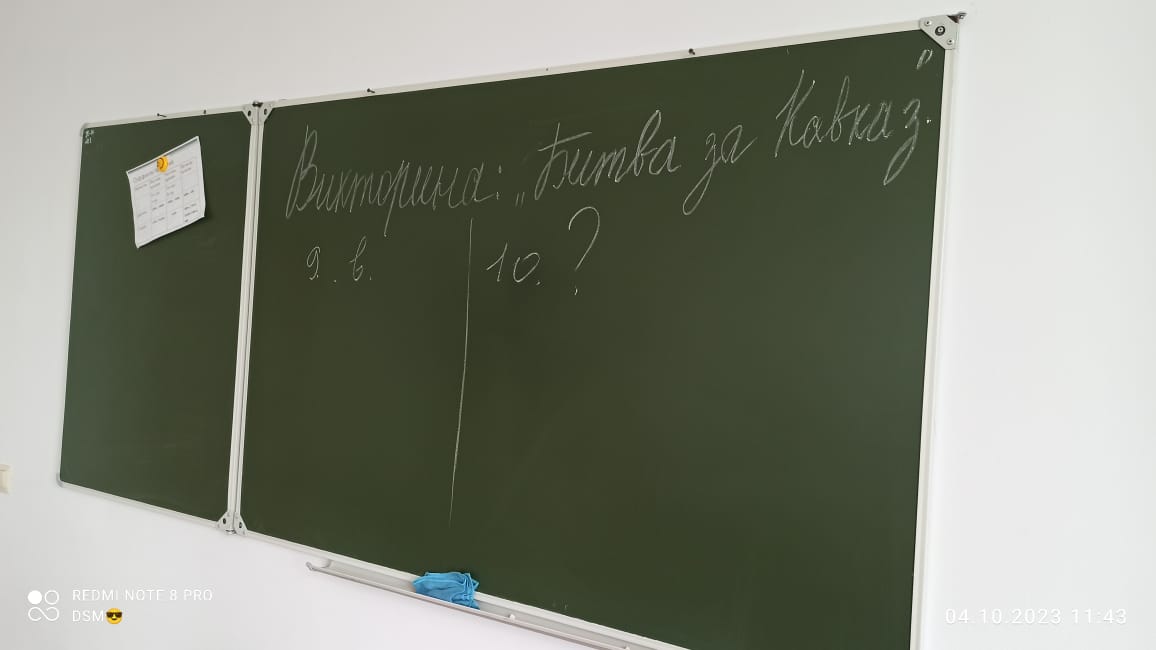 Викторина: „Битва за Кавказ"
9. в.
10. ?
REDMI NOTE 8 PRO
DSM😎
04.10.2023 11:43